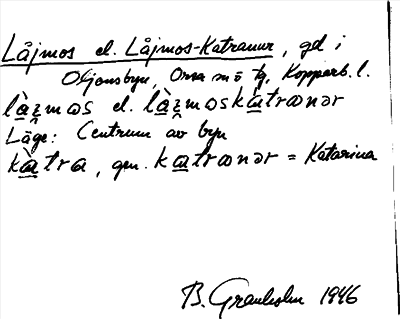 Låjmos el. Låjmos-Katranur, gd i
Oljonsbyn, Orsa sn o tg, Kopparb. l.
là̱ʒ̨mɷs el. là̱ʒ̨mosk&#97;̱trɷnər
Läge: Centrum av byn
kà̱tra, gen. ka̱trɷnər = Katarina
B. Granholm 1946